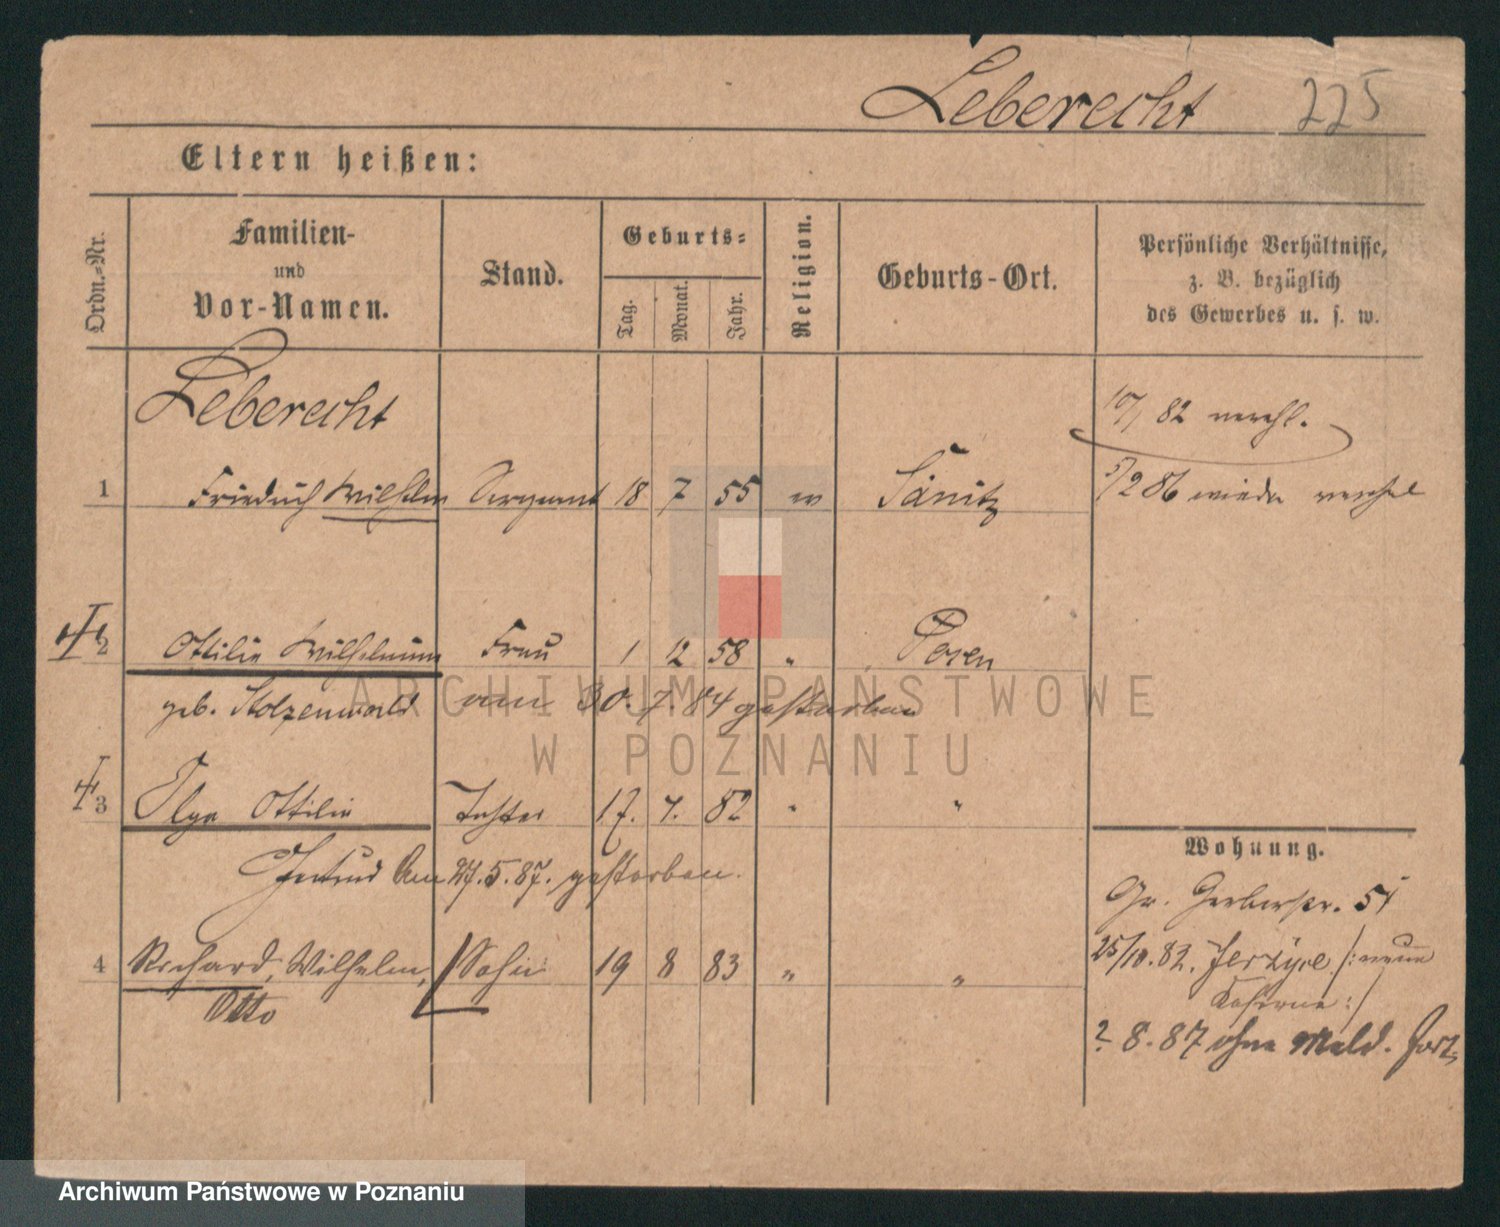 Leberecht 225
Eltern heißen:
Ordn.-Nr.
Familien-
und
Vor-Namen.
Stand.
Geburts-
Tag.
Monat.
Jahr.
Religion.
Geburts-Ort.
Persönliche Verhältnisse,
z. B. bezüglich
des Gewerbes u. s. w.
Leberecht
82 verehl.
1 Friedrich Wilhelm Sergeant 18 7 55 ev Sänitz
2 86 wieder verehel
2 Ottilie Wilhelmine Frau 1 12 58 " Posen
geb. Stolzenwald am 30. 7. 84 gestorben
3 Olga Ottilie Tochter 17. 7. 82 " "
Gertrud Am 27. 5. 87. gestorben.
4 Richard, Wilhelm, Sohn 19 8 83 " "
Otto
Wohnung.
Gr. Gerberstr. 51
25/10. 82. Jerzyce /: neue
Kaserne :/
? 8. 87 ohne Meld. fort.
ARCHIWUM PAŃSTWOWE
W POZNANIU
Archiwum Państwowe w Poznaniu